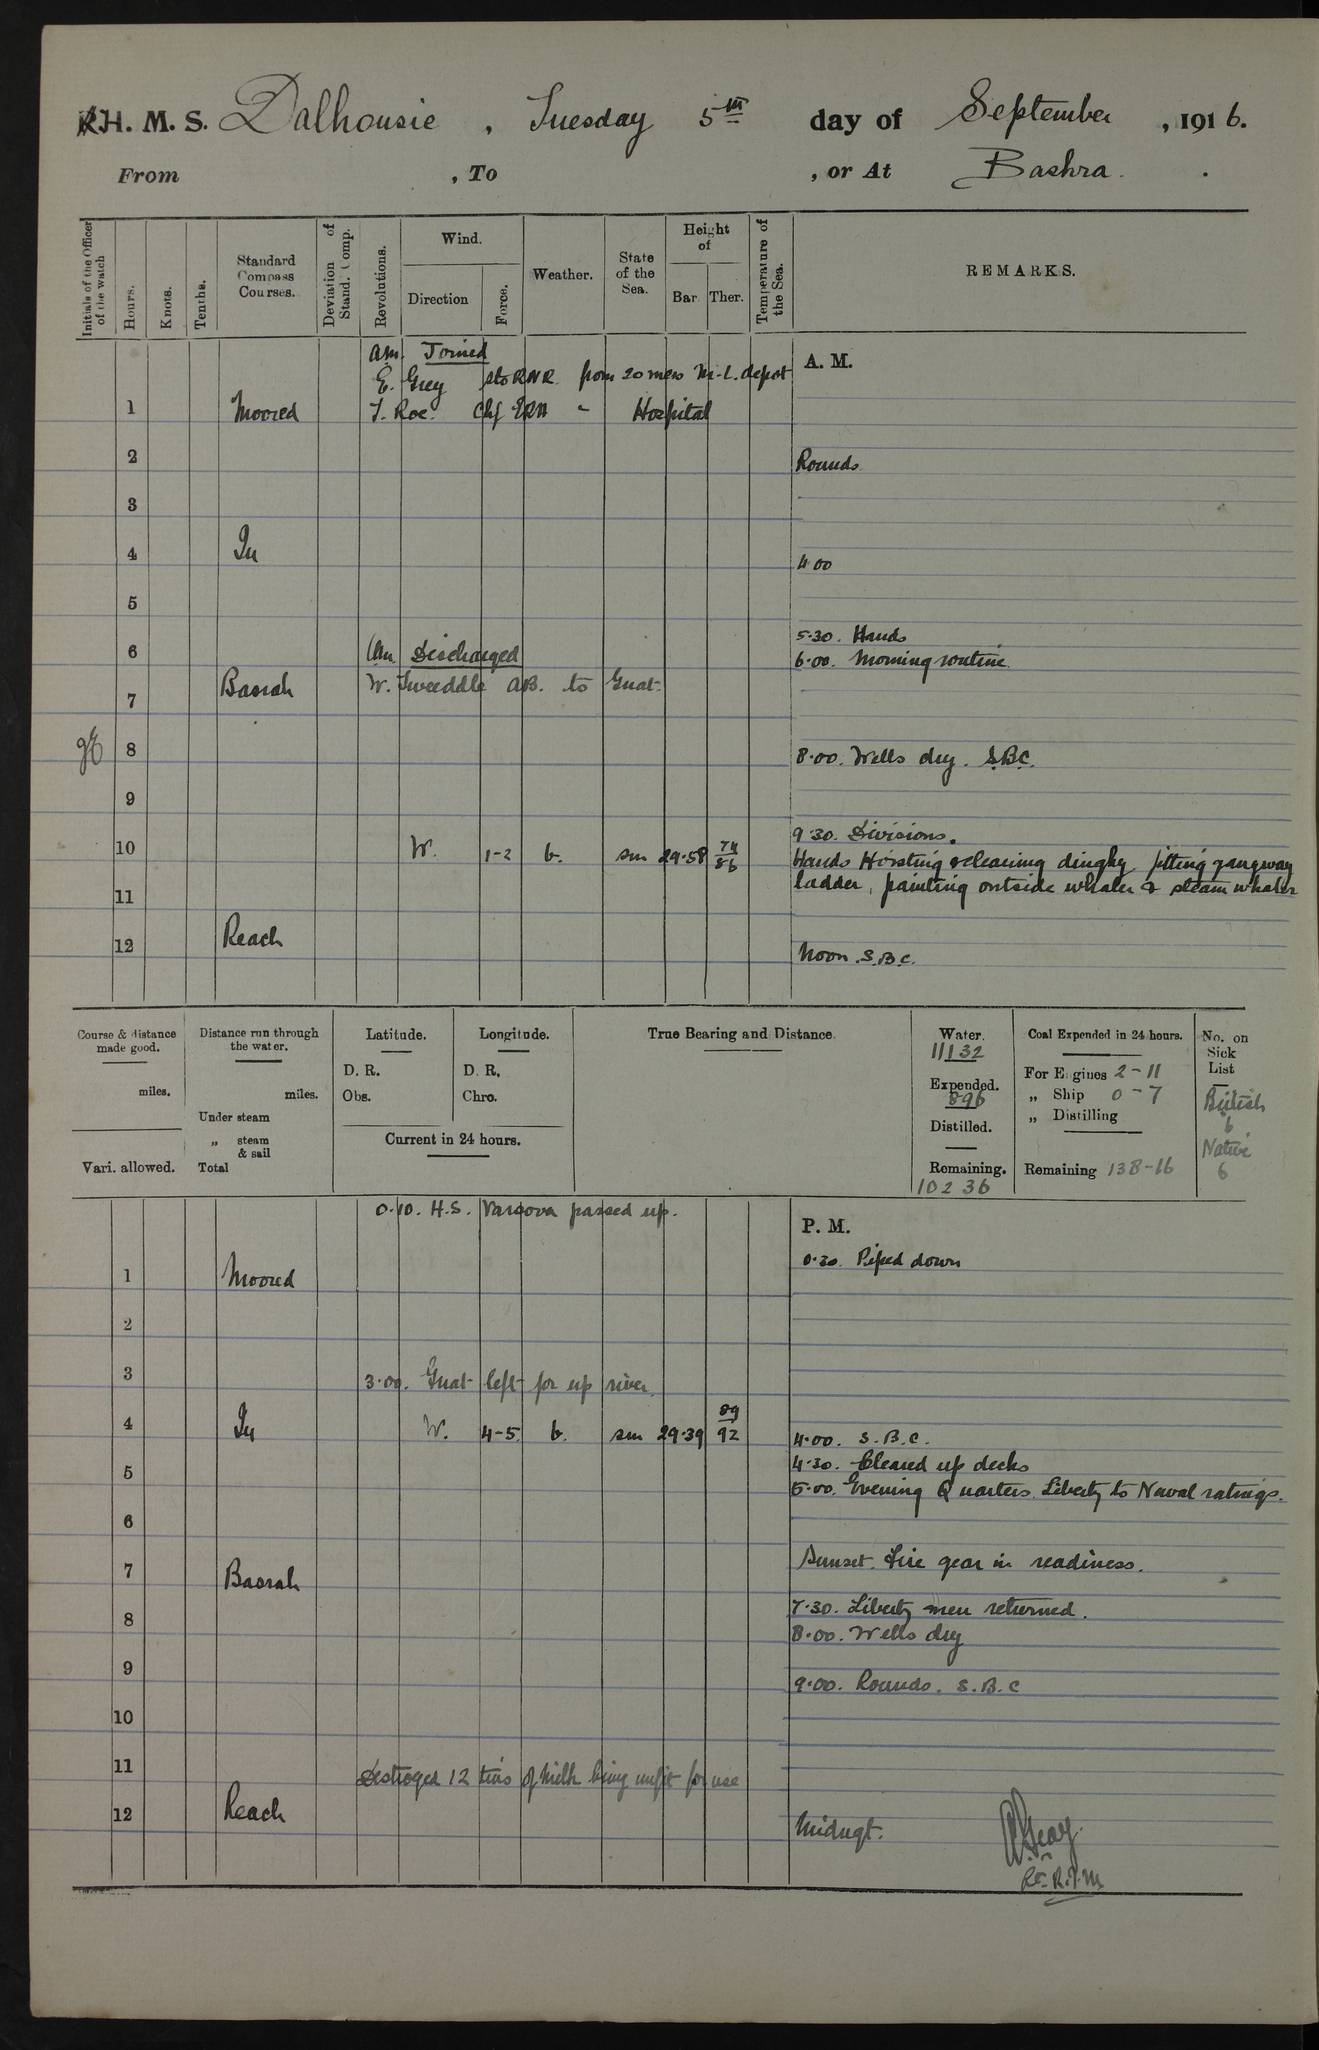 H. M. S. Dalhousie , Tuesday 5th day of September , 1916.
From , To , or At Bashra .
Initials of the Officer of the watch
Hours.
Knots.
Tenths.
Standard Compass Courses.
Deviation of Stand. Comp.
Revolutions.
Wind.
Direction
Force.
Weather.
State of the Sea.
Height of
Bar. Ther.
Temperature of the Sea.
REMARKS.
am. Joined
A. M.
E. Grey Sto RNR. from 20 mess M.L. depot
1 Moored T. Roe. Chf ERA - Hospital
2 Rounds
3
4 In 4 00
5
5.30. Hands
6 am Discharged 6.00. Morning routine
7 Basrah W. Tweeddle AB. to Gnat.
8 8.00. Wells dry. S.B.C.
9
9.30. Divisions.
10 W. 1-2 b. sm 29.58 74/86 Hands Hoisting & cleaning dinghy, fitting gangway
11 ladder, painting outside whaler & steam whaler
12 Reach Noon. S.B.C.
Course & distance made good.
miles.
Vari. allowed.
Distance run through the water.
miles.
Under steam
„ steam & sail
Total
Latitude.
D. R.
Obs.
Longitude.
D. R.
Chro.
Current in 24 hours.
True Bearing and Distance.
Water.
11132
Expended.
896
Distilled.
Remaining.
10236
Coal Expended in 24 hours.
For Engines 2-11
„ Ship 0-7
„ Distilling
Remaining 138-16
No. on Sick List
British
6
Native
6
0.10. H.S. Varsova passed up.
P. M.
0.30. Piped down
1 Moored
2
3 3.00. Gnat left for up river.
4 In W. 4-5 b. sm 29.39 89/92 4.00. S.B.C.
4.30. Cleared up decks
5 5.00. Evening Quarters. Liberty to Naval ratings.
6
7 Basrah Sunset. Fire gear in readiness.
7.30. Liberty men returned.
8 8.00. Wells dry
9 9.00. Rounds. S.B.C
10
11 Destroyed 12 tins of Milk being unfit for use
12 Reach Midngt.
Lt. R.I.M